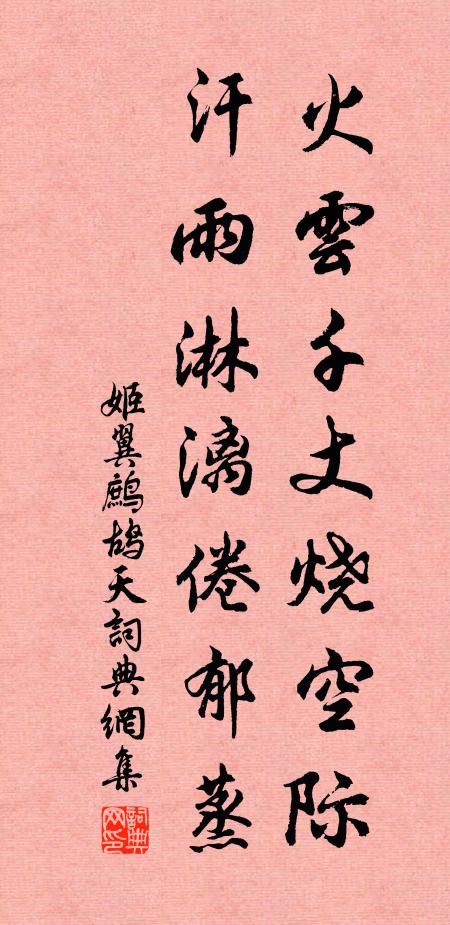 火雲千丈烧空际
汗雨淋漓倦郁蒸
姬翼鷓鴣天詞典網集
詞典网印